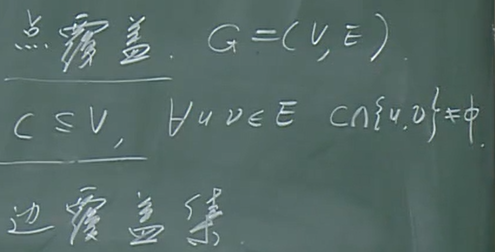 点覆盖. G=(V,E).
C⊆V, ∀uv∈E C∩{u,v}≠φ.
边覆盖集